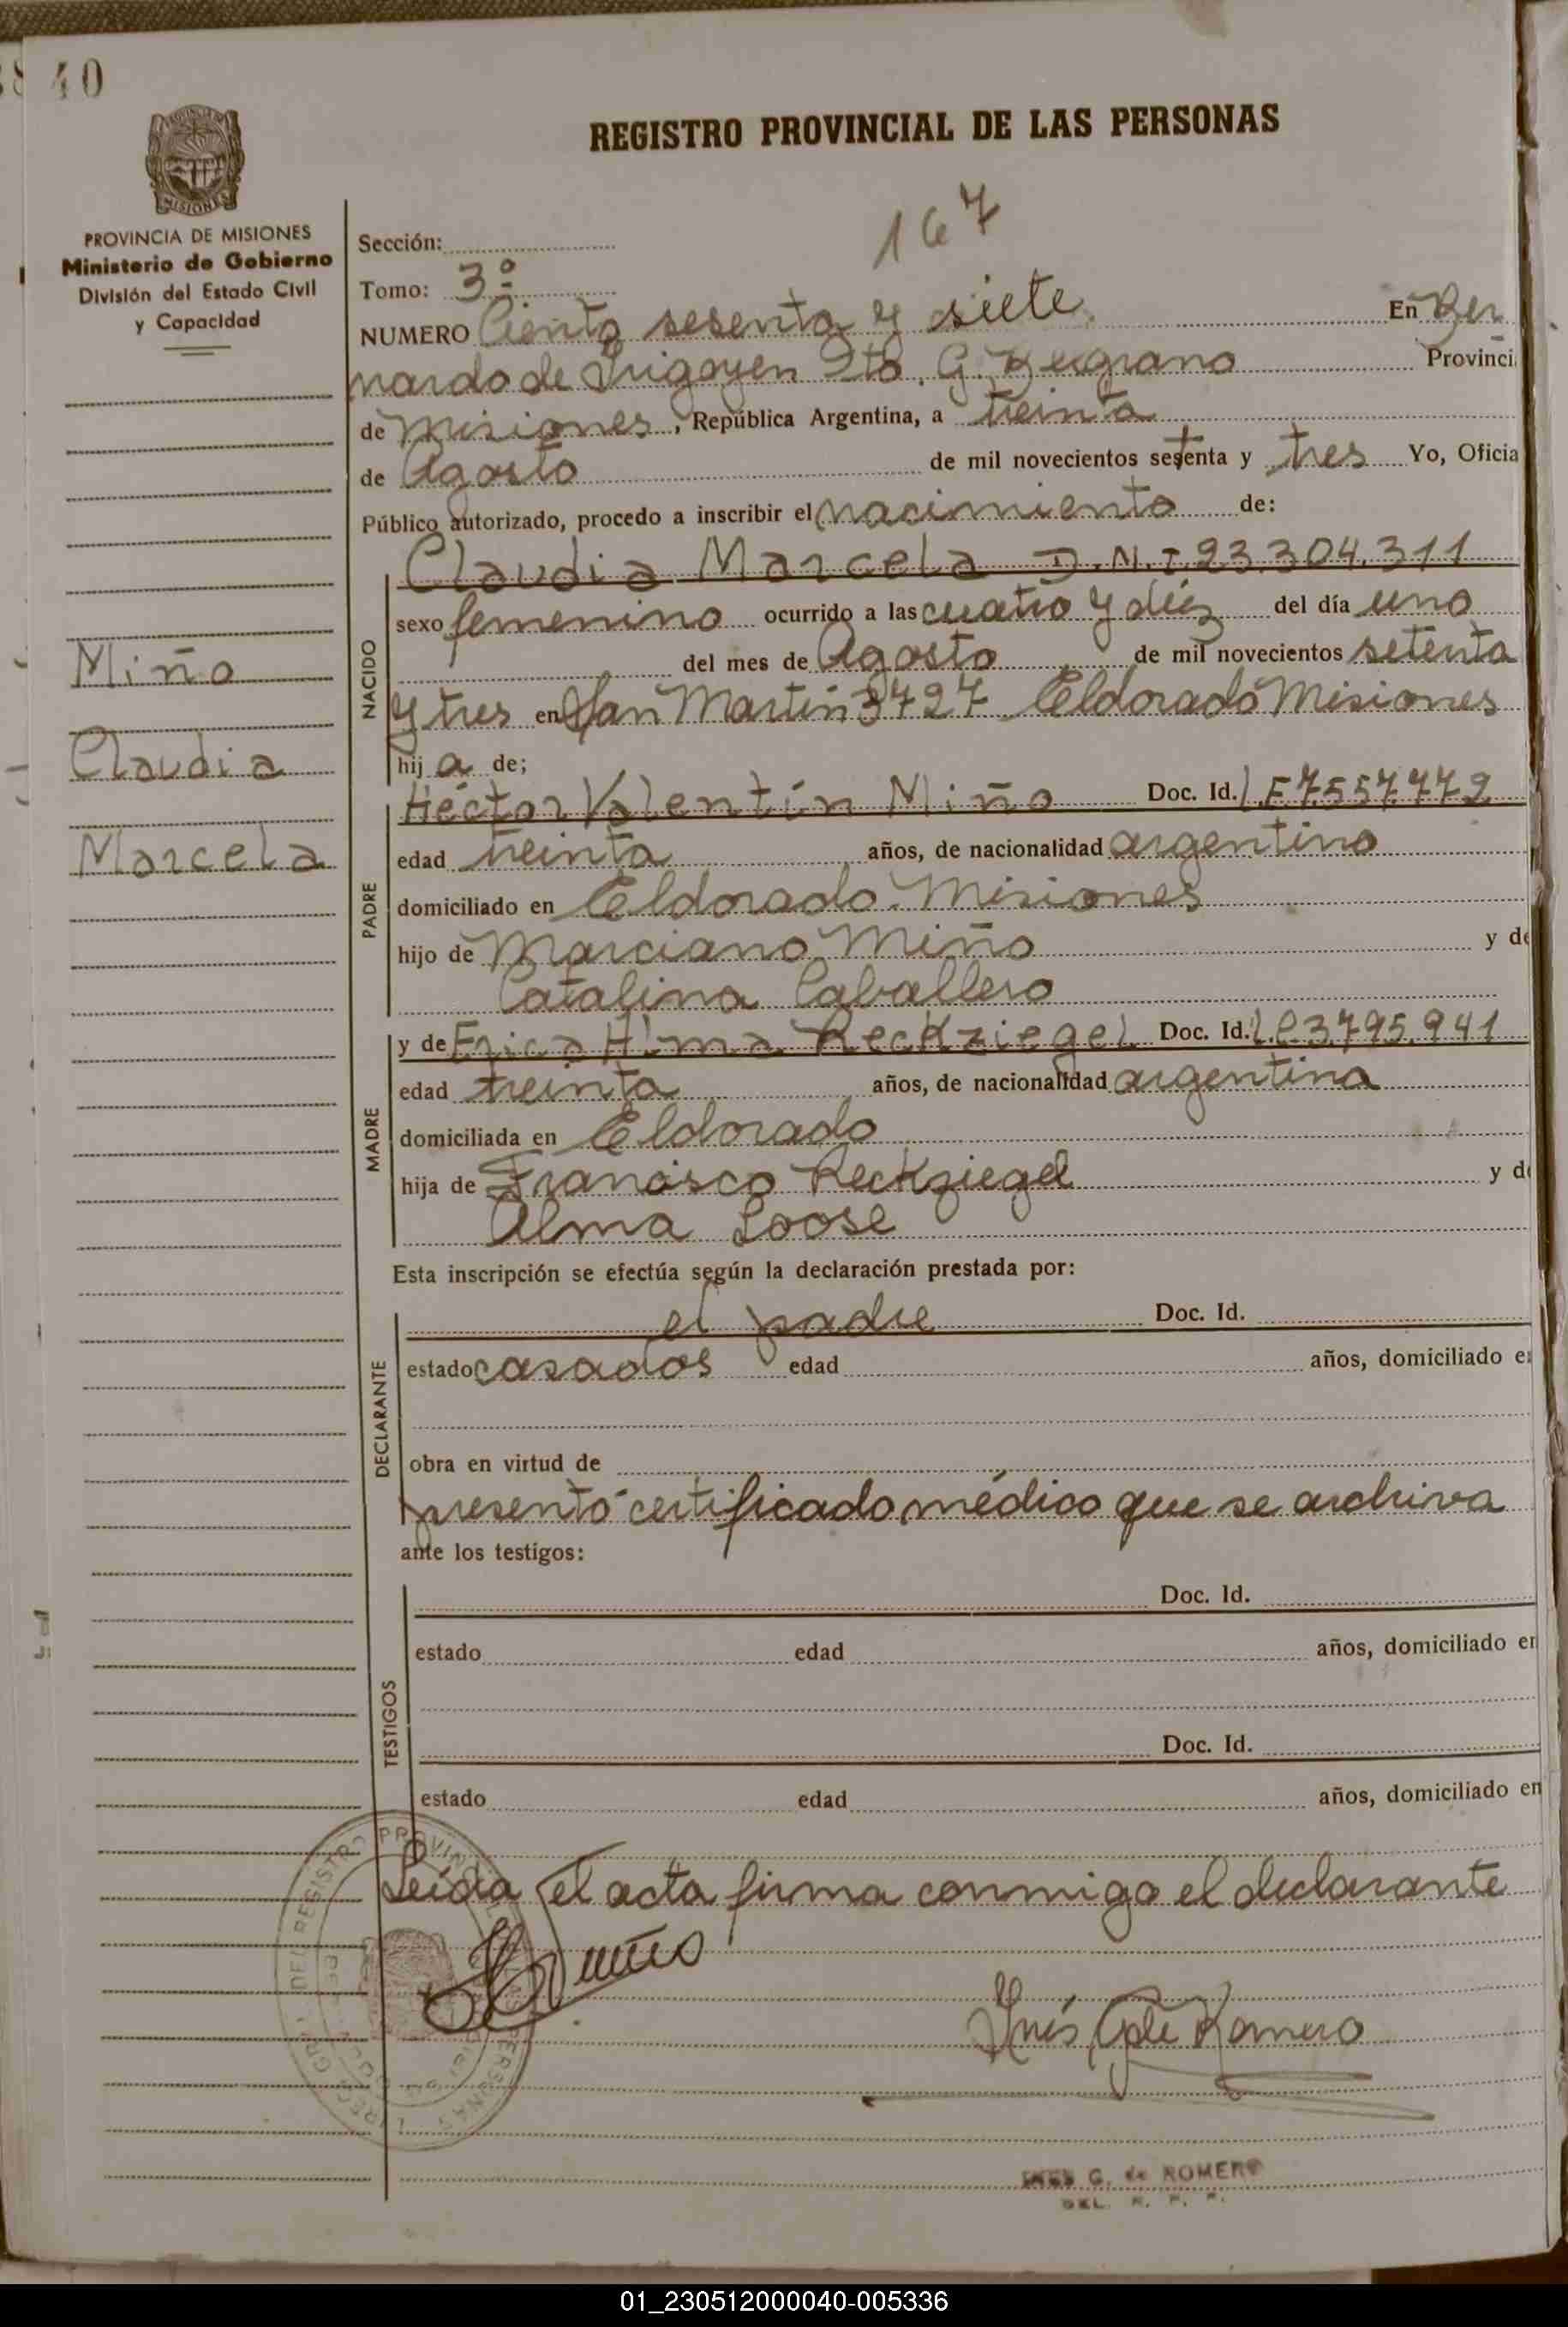 40
REGISTRO PROVINCIAL DE LAS PERSONAS
MISIONES
PROVINCIA DE MISIONES
Ministerio de Gobierno
División del Estado Civil
y Capacidad
167
Sección:
Tomo: 3º
NUMERO Ciento sesenta y siete. En Ber
nardo de Irigoyen Dto. G. Belgrano Provinci
de Misiones, República Argentina, a treinta
de Agosto de mil novecientos setenta y tres Yo, Oficia
Público autorizado, procedo a inscribir el nacimiento de:
Claudia Marcela D.N.I. 23.304.311
NACIDO
sexo femenino ocurrido a las cuatro y diez del día uno
del mes de Agosto de mil novecientos setenta
y tres en San Martín 3727 Eldorado Misiones
hij a de;
Miño
Claudia
Marcela
PADRE
Héctor Valentín Miño Doc. Id. L.E 7.557.772
edad treinta años, de nacionalidad argentino
domiciliado en Eldorado. Misiones
hijo de Marciano Miño y de
Catalina Caballero
MADRE
y de Erica Hilma Reckziegel Doc. Id. L.C 3.795.941
edad treinta años, de nacionalidad argentina
domiciliada en Eldorado
hija de Francisco Reckziegel y d
Alma Loose
Esta inscripción se efectúa según la declaración prestada por:
DECLARANTE
el padre Doc. Id.
estado casados edad años, domiciliado e
obra en virtud de
presentó certificado médico que se archiva
ante los testigos:
TESTIGOS
Doc. Id.
estado edad años, domiciliado en
Doc. Id.
estado edad años, domiciliado en
Leída el acta firma conmigo el declarante
Inés G de Romero
INES G. de ROMERO
DEL. R. P. P.
01_230512000040-005336